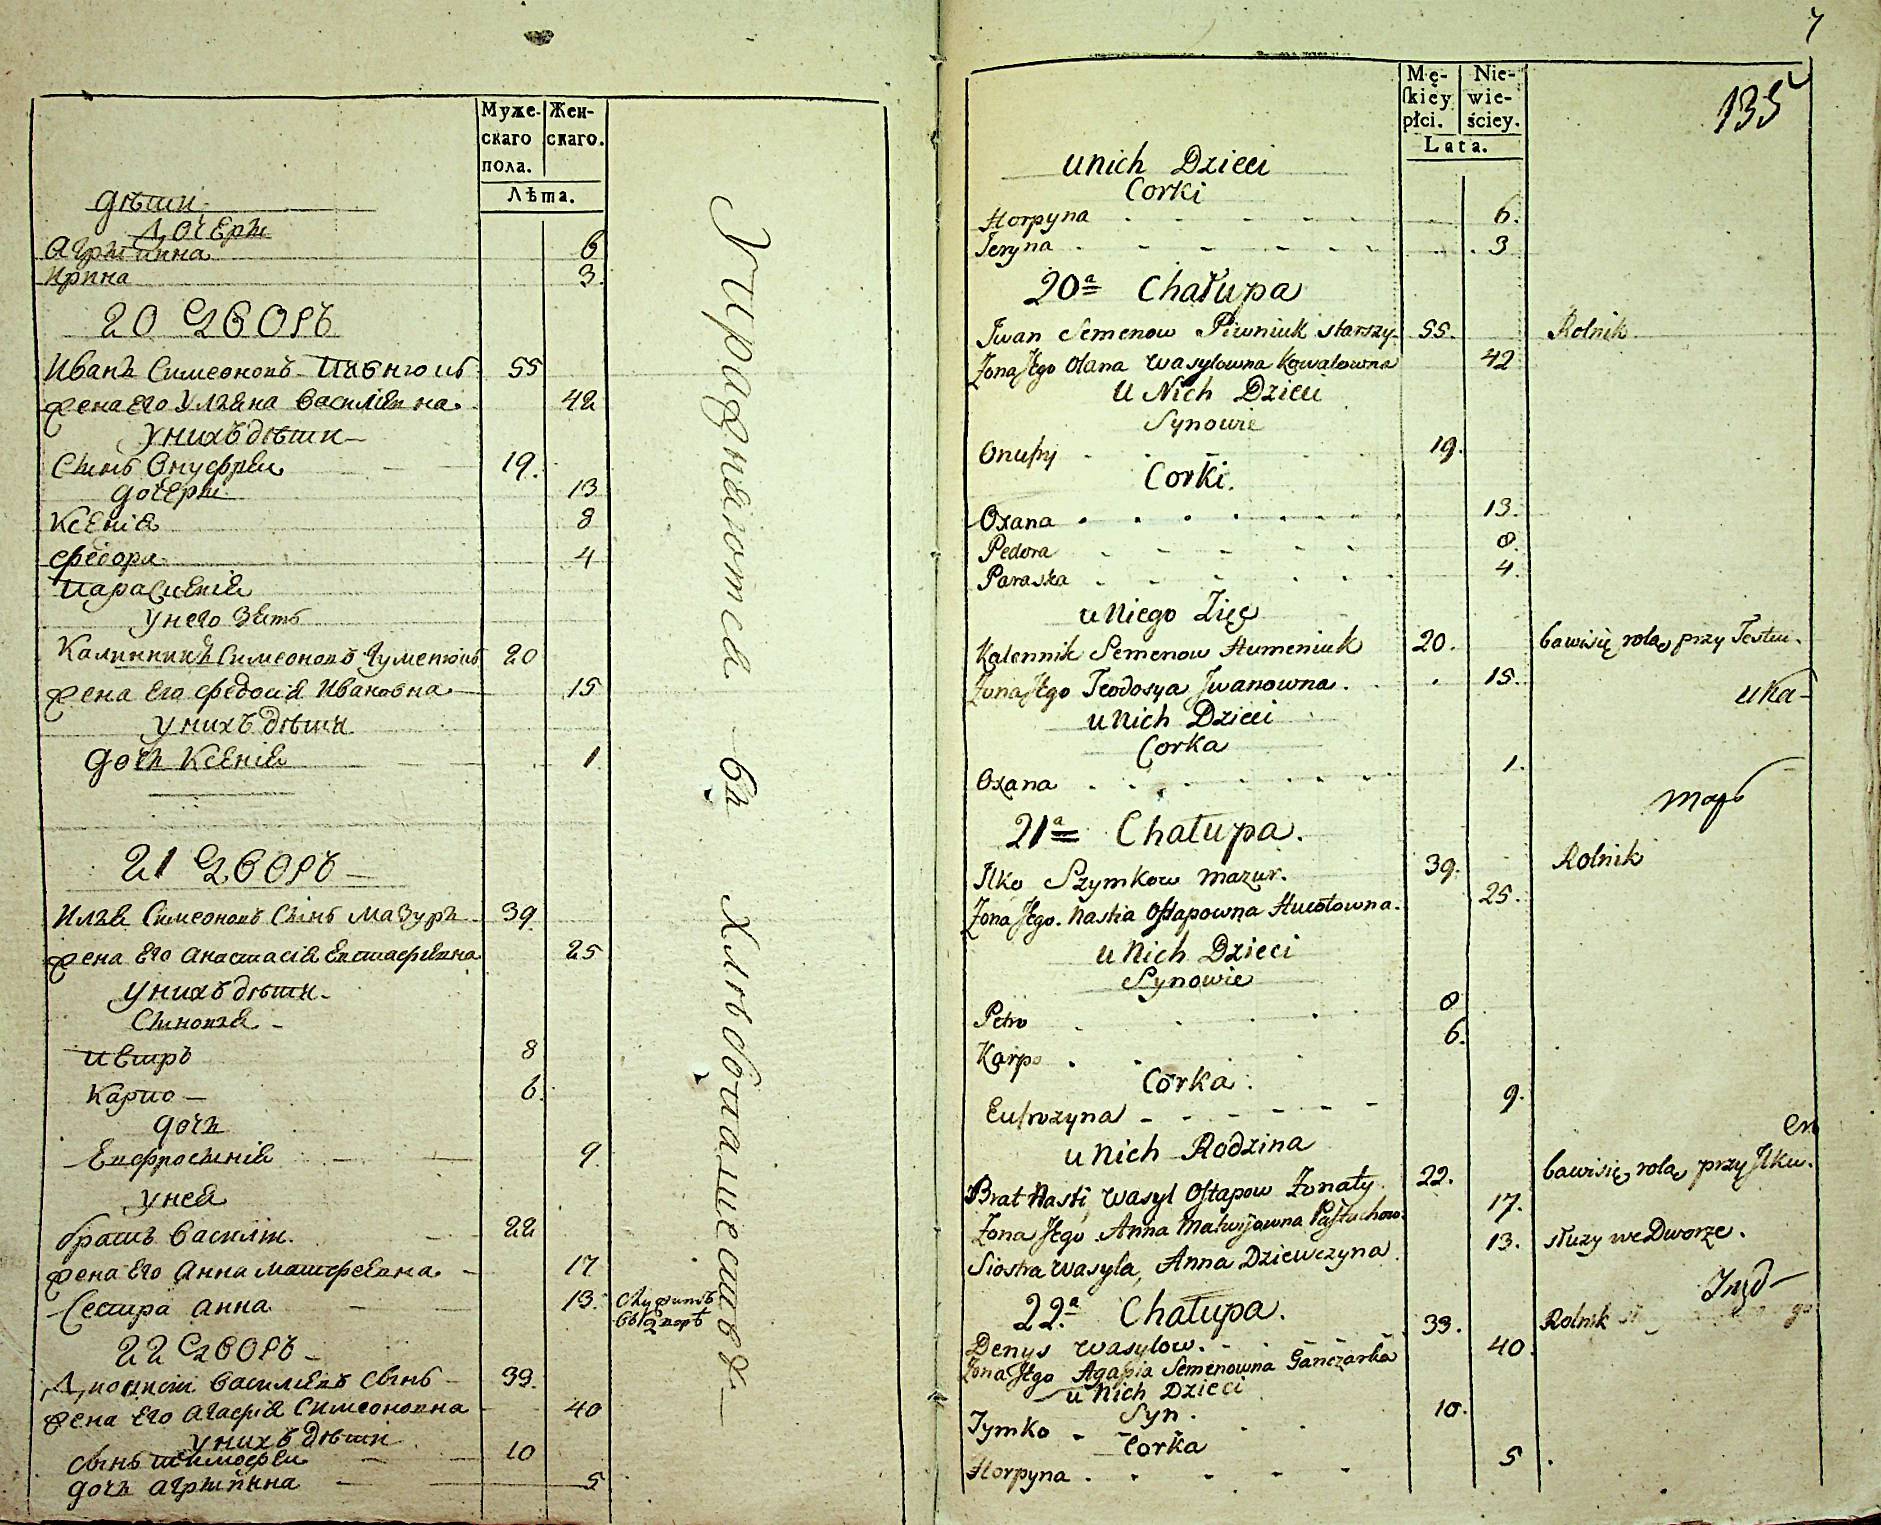 Муже-
скаго
пола.
Жен-
скаго.
Лѣта.
дѣти
дочери
Агрипина 6
Ирина 3
20 Дворъ
Иванъ Симеоновъ Пивнюкъ 55
жена Его Улияна Василiевна 42
у нихъ дѣти
Сынъ Онуфрей 19
дочери 13
Ксенiя 8
Федора 4
Параскевiя
у него Зять
Калинникъ Симеоновъ Гуменюкъ 20
жена Его Федосiя Ивановна 15
у нихъ дѣти
дочь Ксенiя 1
21 Дворъ
Илья Симеоновъ Сынъ Мазуръ 39
жена Его Анастасiя Евстафiевна 25
у нихъ дѣти
Сыновья
Петръ 8
Карпо 6
дочь
Евфросинiя 9
у ней
братъ Василiй 22
жена Его Анна Матфеевна 17
Сестра Анна 13
въ Дворѣ
22 Дворъ
Дионисiй Василiевъ Сынъ 33
жена Его Агафiя Симеоновна 40
у нихъ дѣти
сынъ Тимофей 10
дочь Агрипина 5
Упражняются въ Хлѣбопашествѣ
7
135
Mę-
ſkiey
płci.
Nie-
wie-
ściey.
Lata.
u nich Dzieci
Corki
Horpyna 6.
Jeryna 3
20a Chałupa
Jwan Semenow Piwniuk starszy 55. Rolnik
Zona Jego Olana Wasylowna Kowalowna 42
U Nich Dzieci
Synowie
Onufry 19.
Corki.
Oxana 13.
Pedora 8.
Paraska 4.
u Niego Zięć
Kalennik Semenow Humeniuk 20. bawi się rolą przy Testiu.
Zona Jego Teodosya Jwanowna. 15.
u Nich Dzieci
Corka
Oxana 1.
21a Chałupa.
Jlko Szymkow Mazur. 39. Rolnik
Zona Jego Nastia Ostapowna 25.
u Nich Dzieci
Synowie
Petro 8
Karpo 6.
Corka.
Eufrozyna 9.
u Nich Rodzina
Brat Nasti, Wasyl Ostapow Zonaty 22. bawi się rolą przy Jlku.
Zona Jego Anna Matwijowna 17.
Siostra Wasyla, Anna Dziewczyna 13. służy we Dworze.
22.a Chałupa.
Denys Wasylow. 33. Rolnik
Zona Jego Agapia Semenowna Ganczarka 40.
u Nich Dzieci
Syn.
Tymko 10.
Corka
Horpyna 5